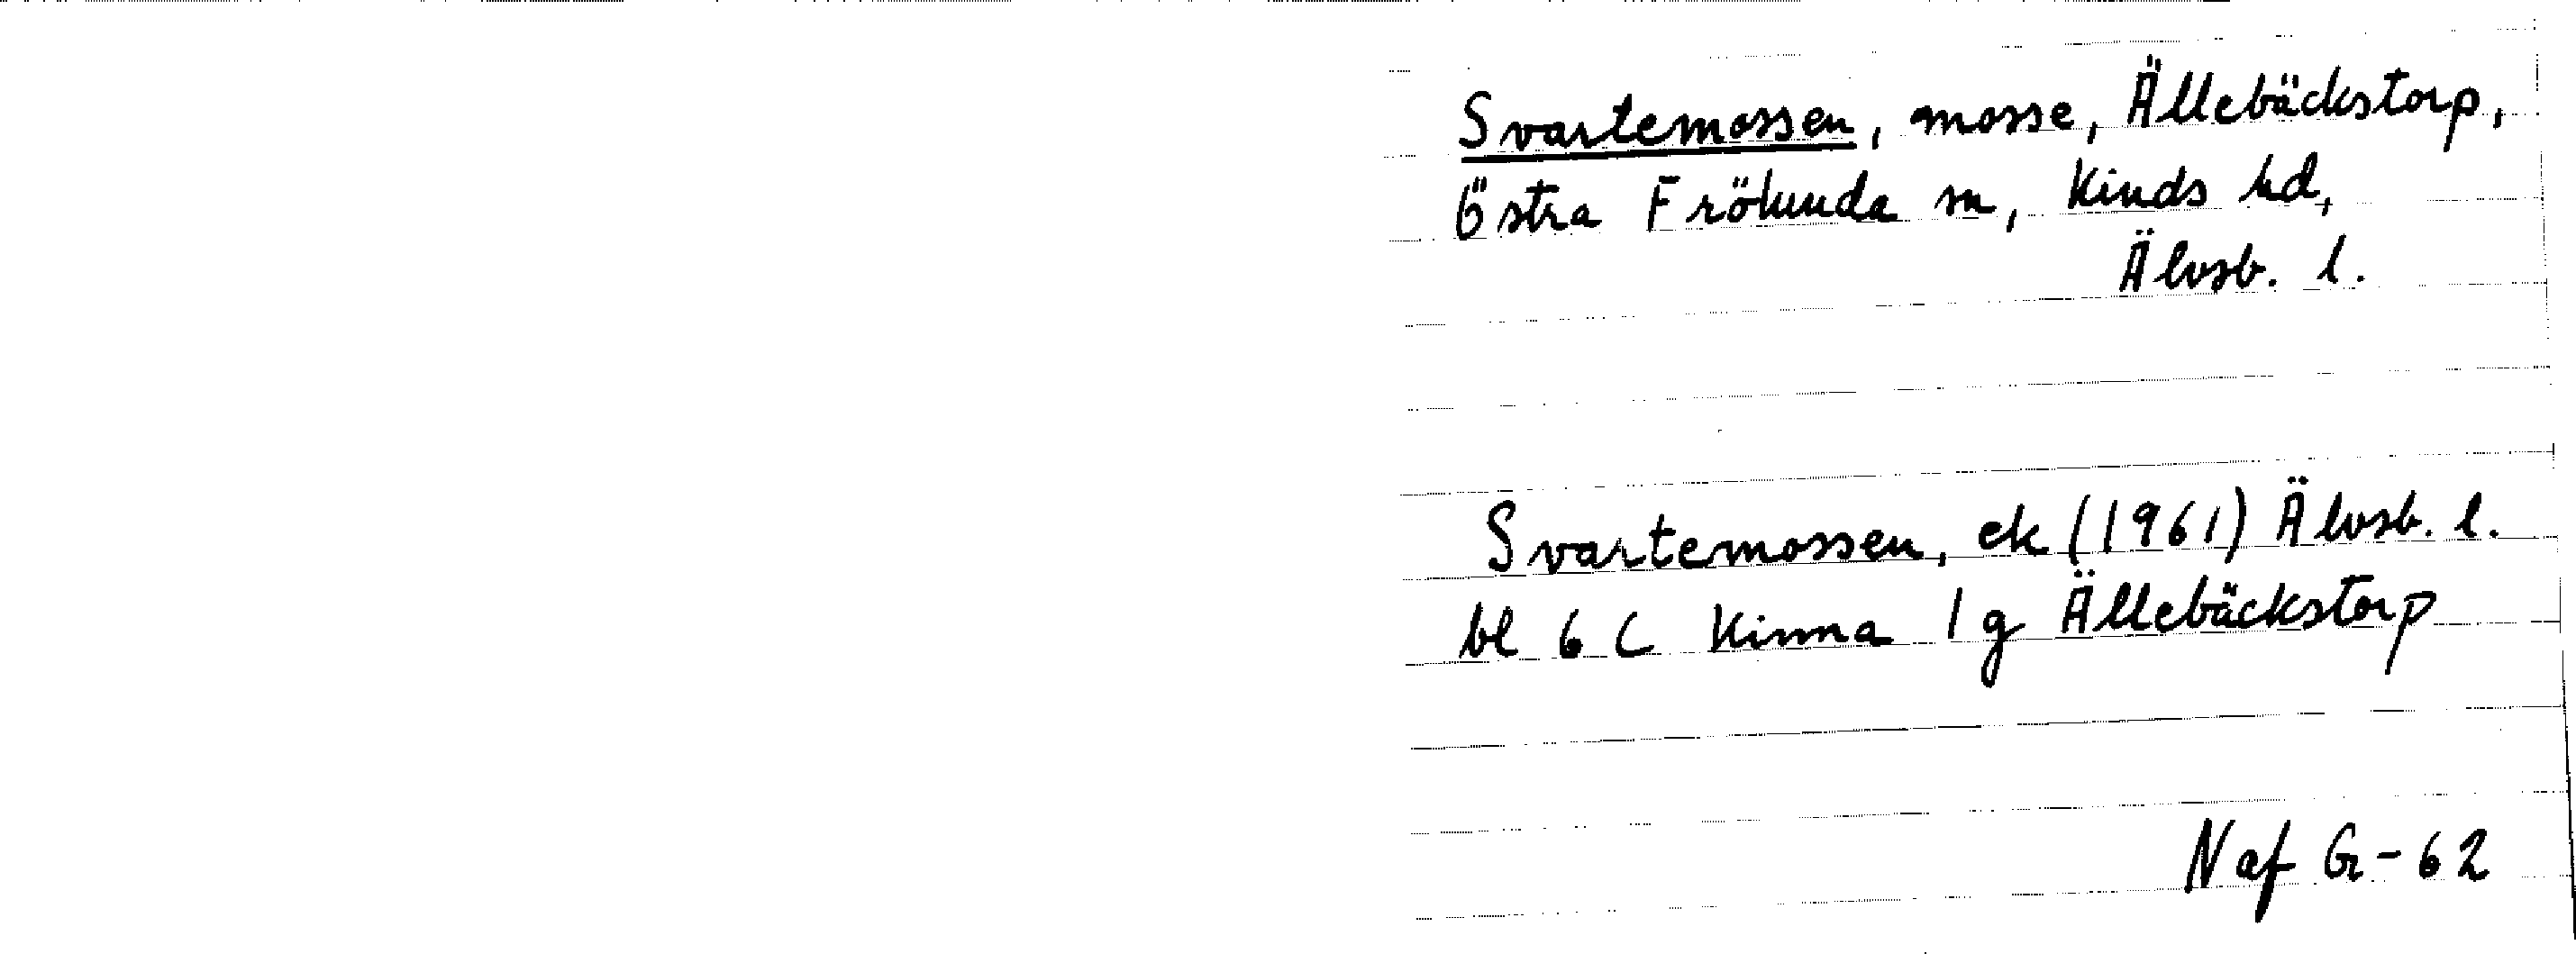 Svartemossen, mosse, Ällebäckstorp,
Östra Frölunda sn, Kinds hd,
Älvsb. l.
Svartemossen, ek (1961) Älvsb. l.
bl 6 C Kinna 1 g Ällebäckstorp
N af G-62